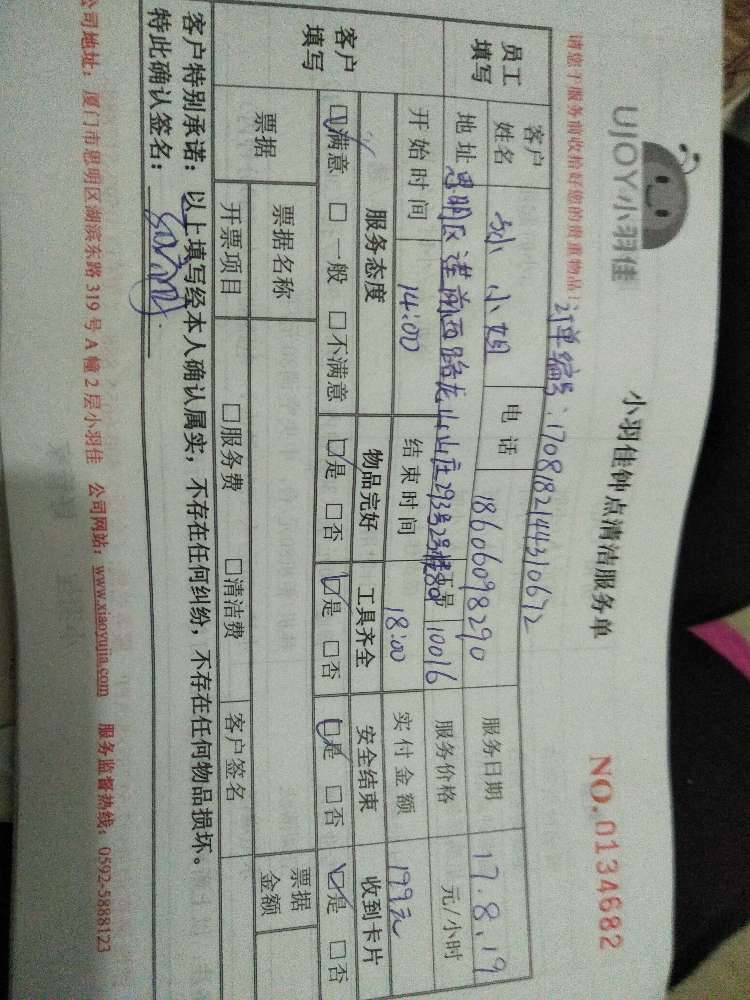 UJOY小羽佳
小羽佳钟点清洁服务单
NO.0134682
请您于服务前收拾好您的贵重物品!
订单编号:1708182144310672
员工填写 客户姓名 孙小姐 电话 18606098290 服务日期 17.8.19
地址 思明区莲前西路龙山山庄293号2号楼 工号 10016 服务价格 元/小时
开始时间 14:00 结束时间 18:00 实付金额 199元
客户填写 服务态度 物品完好 工具齐全 安全结束 收到卡片
☑满意 □一般 □不满意 ☑是 □否 ☑是 □否 ☑是 □否 ☑是 □否
票据 票据名称 票据金额
开票项目 □服务费 □清洁费 客户签名
客户特别承诺:以上填写经本人确认属实,不存在任何纠纷,不存在任何物品损坏。
特此确认签名:
公司地址:厦门市思明区湖滨东路319号A幢2层小羽佳 公司网站:www.xiaoyujia.com 服务监督热线:0592-5888123